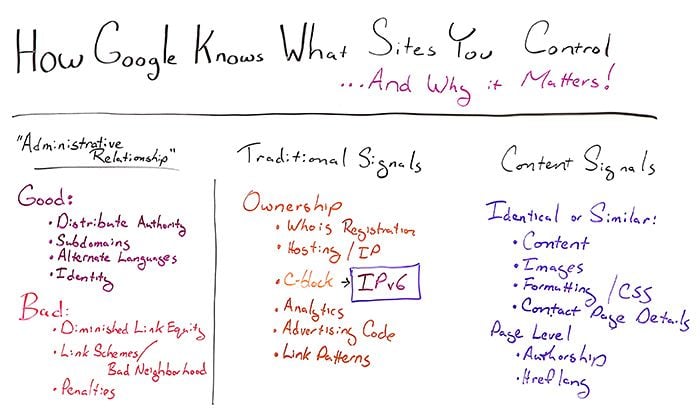 How Google Knows What Sites You Control
...And Why it Matters!
"Administrative
Relationship"
Good:
• Distribute Authority
• Subdomains
• Alternate Languages
• Identity
Bad:
• Diminished Link Equity
• Link Schemes/
Bad Neighborhood
• Penalties
Traditional Signals
Ownership
• Whois Registration
• Hosting / IP
• C-block → IPv6
• Analytics
• Advertising Code
• Link Patterns
Content Signals
Identical or Similar:
• Content
• Images
• Formatting / CSS
• Contact Page Details
Page Level
• Authorship
• Hreflang